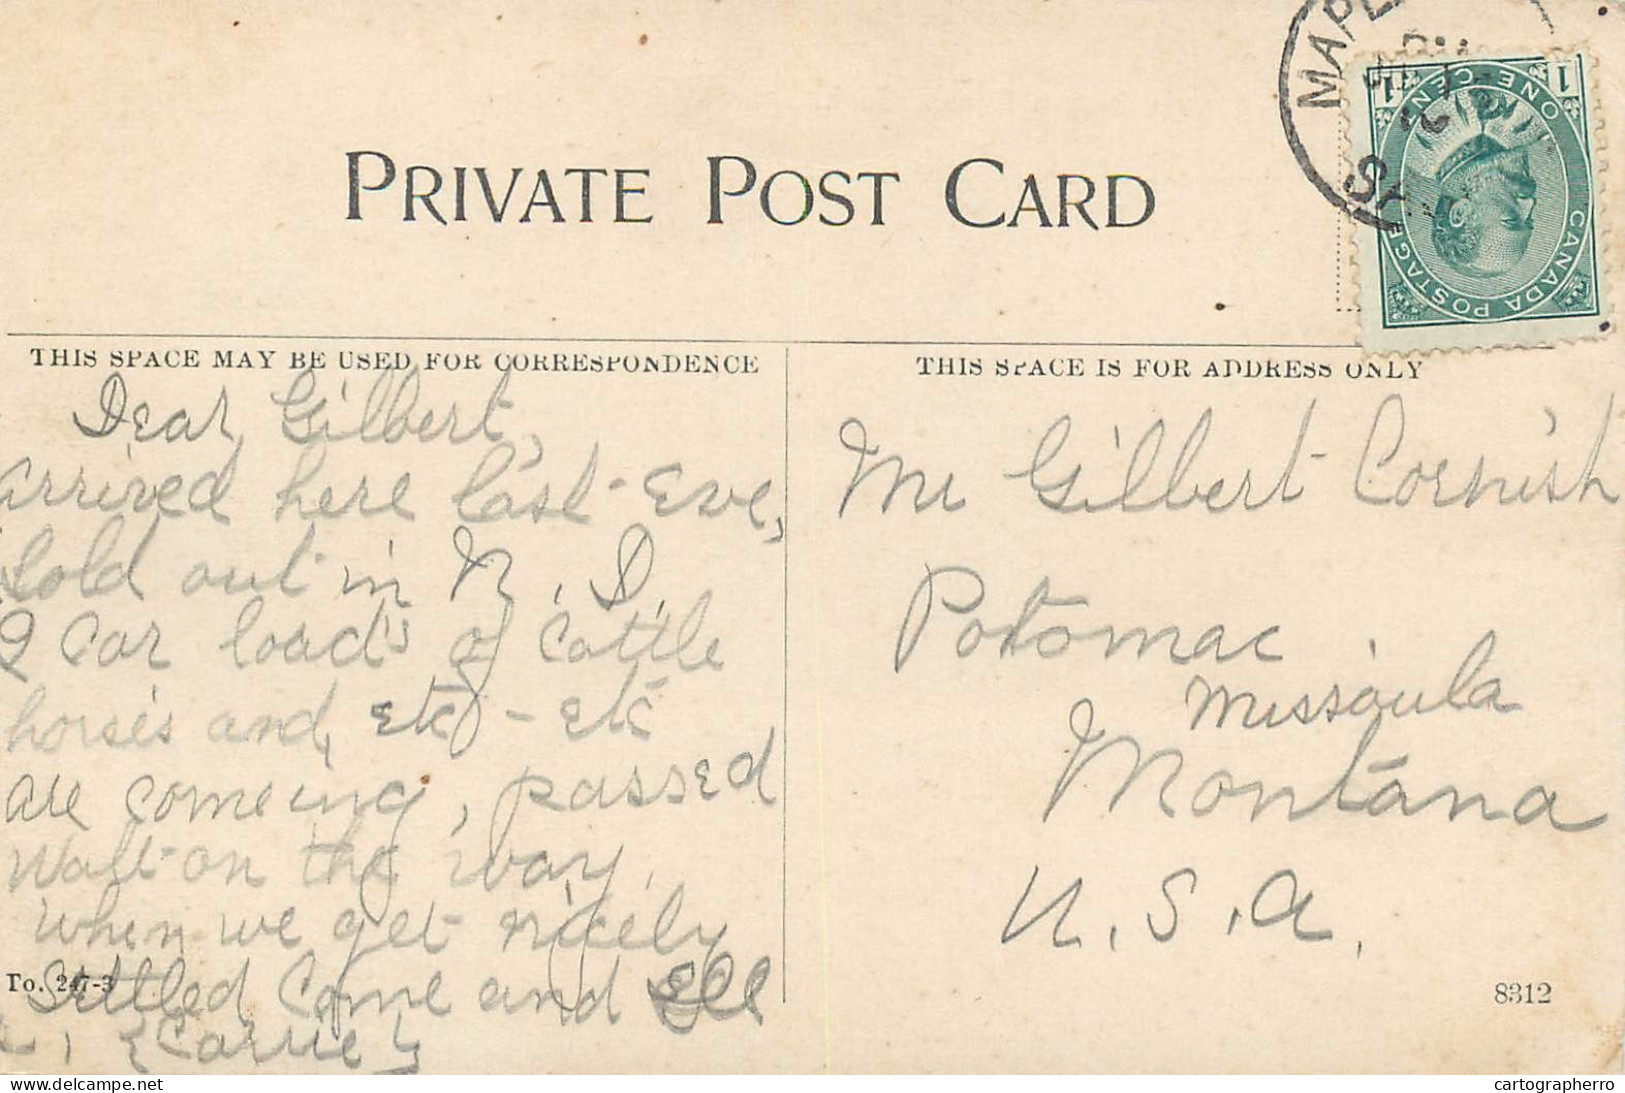 PRIVATE POST CARD
MAPL
CANADA POSTAGE
ONE CENT
1 1
THIS SPACE MAY BE USED FOR CORRESPONDENCE
Dear Gilbert,
arrived here last Eve,
Sold out in N. D.
2 Car loads of Cattle
horses and, etc - etc
are comeing, passed
Walt on the way.
When we get nicely
Settled Come and
{Carrie}
To. 247-3
THIS SPACE IS FOR ADDRESS ONLY
Mr Gilbert Cornish
Potomac
Missoula
Montana
U.S.A.
8312
delcampe.net
cartographerro